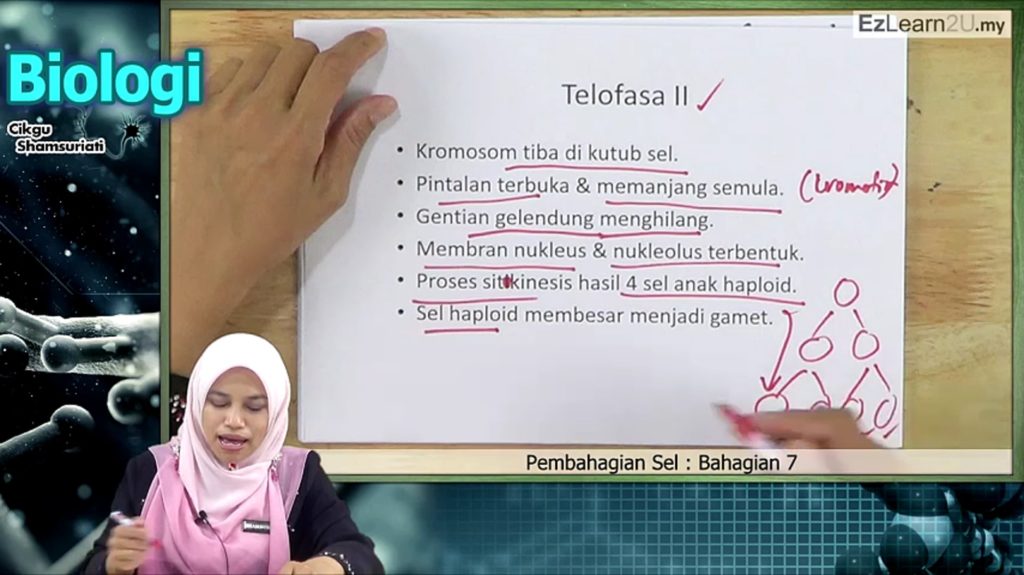 EzLearn2U.my
Biologi
Cikgu
Shamsuriati
Telofasa II
• Kromosom tiba di kutub sel.
• Pintalan terbuka & memanjang semula. (kromatin)
• Gentian gelendung menghilang.
• Membran nukleus & nukleolus terbentuk.
• Proses sitokinesis hasil 4 sel anak haploid.
• Sel haploid membesar menjadi gamet.
Pembahagian Sel : Bahagian 7